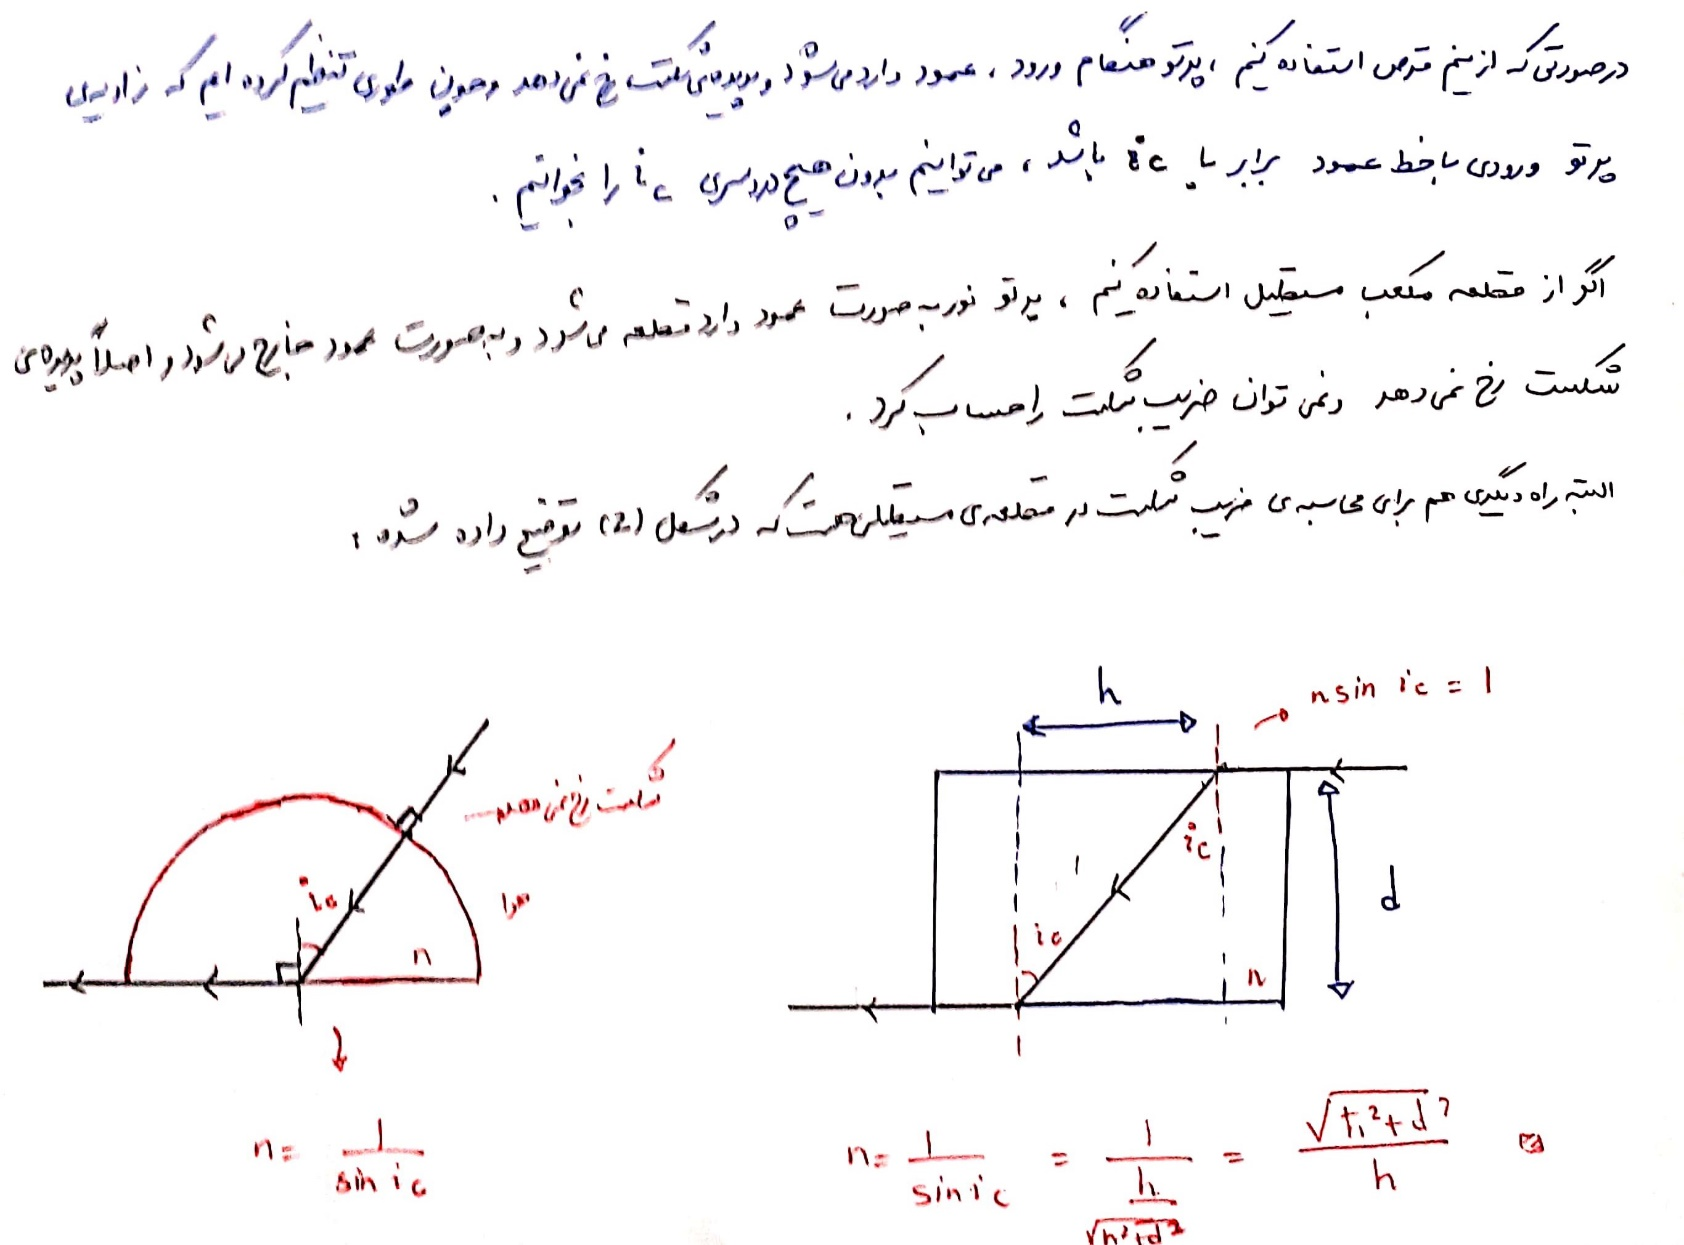 درصورتی که از نیم قرص استفاده کنیم ، پرتو هنگام ورود ، عمود وارد می‌شود و پدیده‌ی شکست رخ نمی‌دهد و چون طوری تنظیم کرده ایم که زاویه‌ی
پرتو ورودی با خط عمود برابر با ic باشد ، می‌توانیم بدون هیچ دردسری ic را بخوانیم .
اگر از قطعه مکعب مستطیل استفاده کنیم ، پرتو نور به صورت عمود وارد قطعه می‌شود و به صورت عمود خارج می‌شود و اصلاً پدیده‌ی
شکست رخ نمی‌دهد و نمی توان ضریب شکست را حساب کرد .
البته راه دیگری هم برای محاسبه‌ی ضریب شکست در قطعه‌ی مستطیلی هست که در شکل (2) توضیح داده شده :
h
n sin ic = 1
شکست رخ نمی‌دهد
ic
هوا
n
ic
ic
n
d
n = 1 / sin ic
n = 1 / sin ic = 1 / (h / √h²+d²) = √h²+d² / h